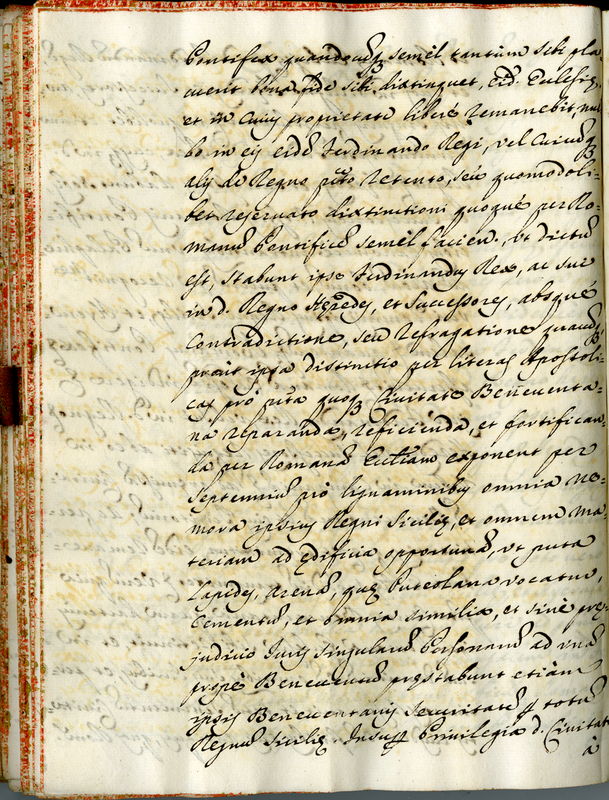 Pontifex quandocuq semel tantùm sibi pla
cuerit bona fide sibi distinguet, eid. Eclesię,
et in cuius proprietate liberè remanebit, nul
lo in eis eidē Ferdinando Regi, vel cuicuq
alij de Regno pto retento, seù quomodoli-
bet reservato distinctioni quoque per Ro-
manū Pontificē semel facien., ut dictū
est, stabunt ipse Ferdinandus Rex, ac sui
in d. Regno Hęredes, et Successores, absque
Contradictione, seù refragatione quacuq
prout ipsa distinctio per literas Apostoli-
cas pro pta quoq Civitate Beneventa-
na reparanda, reficienda, et fortifican-
da per Romanā Eccliam exponent per
Septenniū pro lignaminibus omnia ne-
mora ipsius Regni Sicilię, et omnem ma
teriam ad ędificia opportunā, ut puta
Lapides, Arenā, quę Puteolana vocatur,
Cementū, et omnia similia, et sinè prę-
judicio Juris singularū Personarū ad
propè Beneventū pręstabunt etiàm
ipsis Beneventanis securitatē p totū
Regnū Sicilię. Insup Privilegia d. Civitat
à